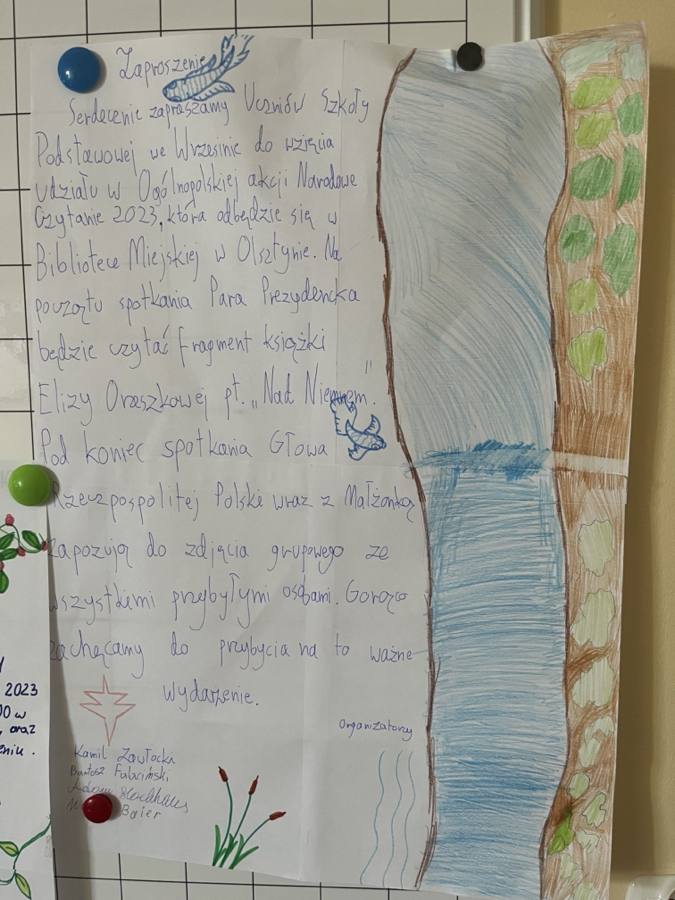 Zaproszenie
Serdecznie zapraszamy Uczniów Szkoły
Podstawowej we Wrzesinie do wzięcia
udziału w Ogólnopolskiej akcji Narodowe
Czytanie 2023, która odbędzie się w
Bibliotece Miejskiej w Olsztynie. Na
początu spotkania Para Prezydencka
będzie czytać fragment książki
Elizy Orzeszkowej pt. „Nad Niemnem".
Pod koniec spotkania Głowa
Rzeczpospolitej Polski wraz z Małżonką
zapozują do zdjęcia grupowego ze
wszystkiemi przybyłymi osobami. Gorąco
zachęcamy do przybycia na to ważne
wydarzenie.
organizatorzy
Kamil Zawłocka
Bartosz
Adam
Baier
2023
00 w
oraz